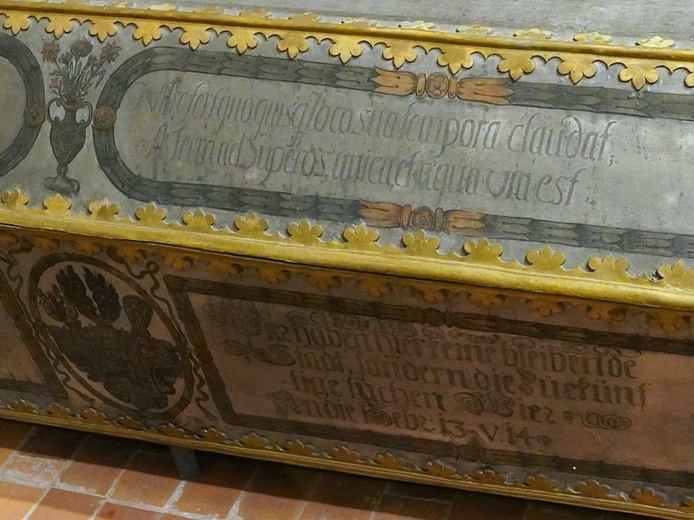 Nil refert quo quisq; loco sua tempora claudat,
A Terra ad Superos, unica ubiqua via est.
Wir haben hier keine bleibende
Stadt, sondern die Zuekünf
tige suchen Wier
Hebr. 13. V. 14.